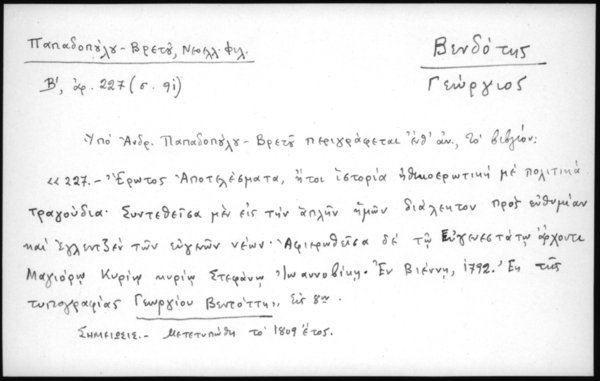 Παπαδοπούλου-Βρετοῦ, Νεοελλ. φιλ.
Βενδότης
Γεώργιος
Β', ἀρ. 227 (σ. 91)
Ὑπό Ἀνδρ. Παπαδοπούλου-Βρετοῦ περιγράφεται ἐνθ' ἀν., τό βιβλίον:
«227.- Ἔρωτος Ἀποτελέσματα, ἤτοι ἱστορία ἠθικοερωτική μέ πολιτικά
τραγούδια. Συντεθεῖσα μὲν εἰς τήν ἁπλῆν ἡμῶν διάλεκτον πρός εὐθυμίαν
καί ἐγλεντζέν τῶν εὐγενῶν νέων. Ἀφιερωθεῖσα δέ τῷ Εὐγενεστάτῳ ἄρχοντι
Μαγιόρῳ Κυρίῳ κυρίῳ Στεφάνῳ Ἰωαννοβίκῃ. Ἐν Βιέννῃ, 1792. Ἐκ τῆς
τυπογραφίας Γεωργίου Βεντόττη,, εἰς 8ον.
ΣΗΜΕΙΩΣΙΣ.- Μετετυπώθη τό 1809 ἔτος.